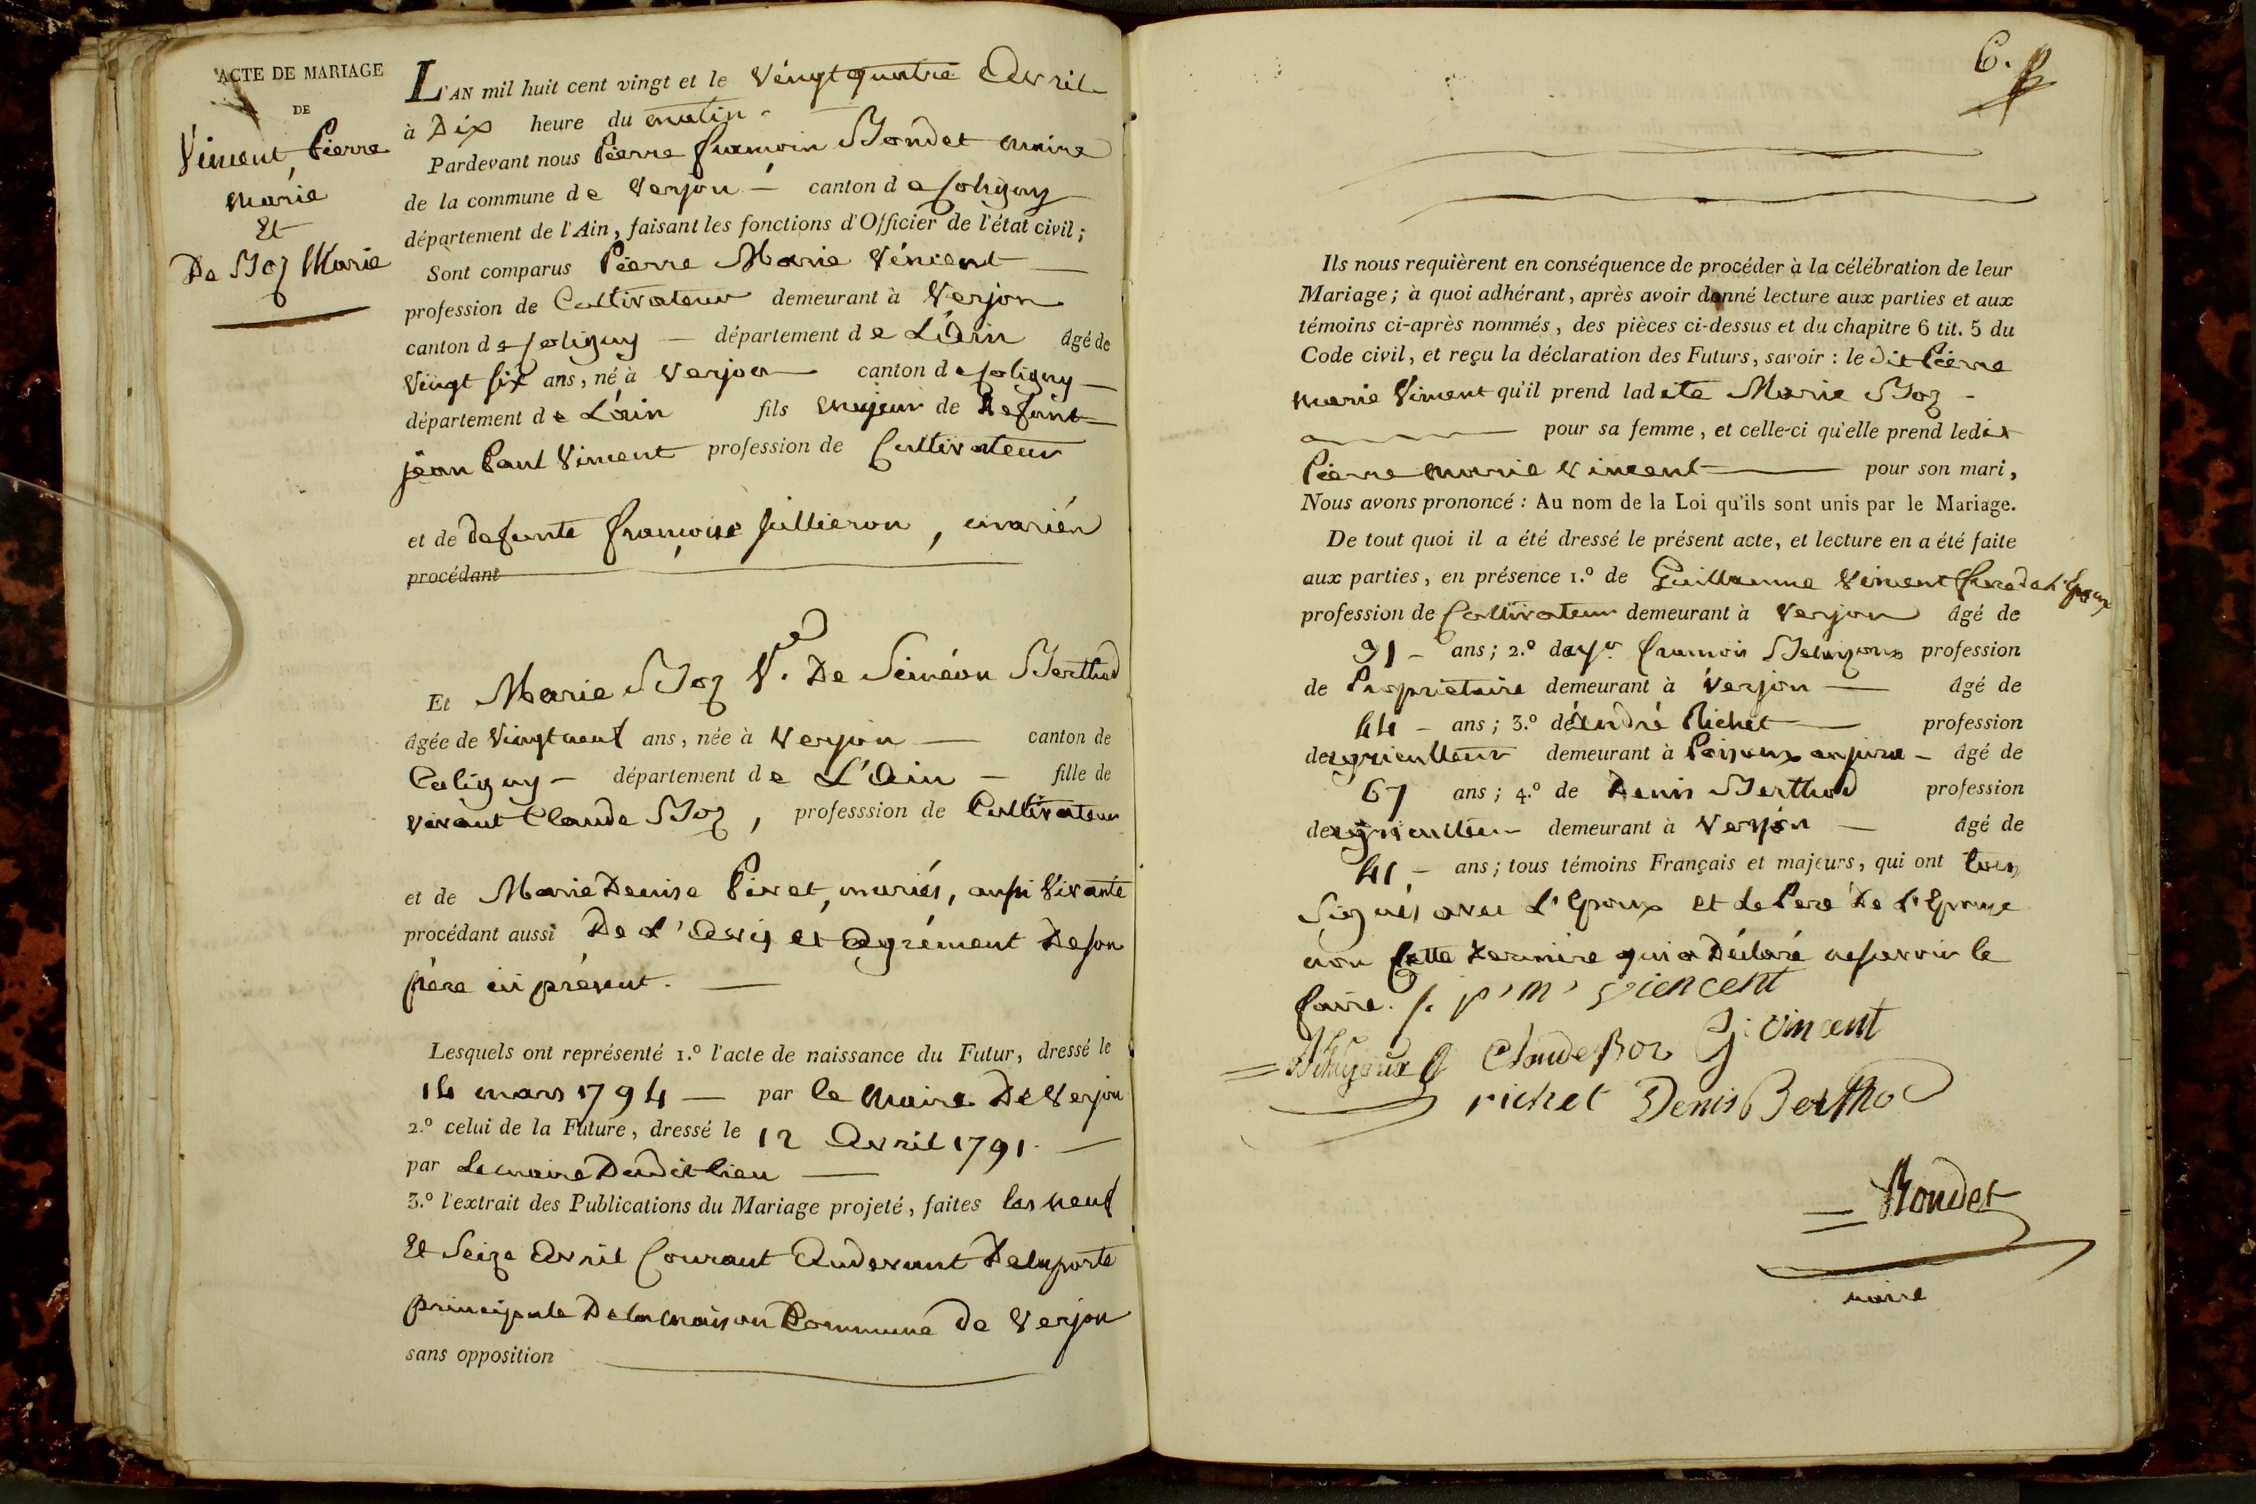 ACTE DE MARIAGE
DE
Vincent Pierre
Marie
Et
De Boz Marie
L'AN mil huit cent vingt et le vingt quatre Avril
à Dix heure du matin
Pardevant nous Pierre françois Bondet maire
de la commune de Verjon canton de Coligny
département de l'Ain, faisant les fonctions d'Officier de l'état civil;
Sont comparus Pierre Marie Vincent
profession de Cultivateur demeurant à Verjon
canton de Coligny département de L'Ain âgé de
vingt six ans, né à Verjon canton de Coligny
département de L'ain fils majeur de Defunt
jean Paul Vincent profession de Cultivateur
et de defunte françoise Jullieron, mariés
procédant
Et Marie Boz Ve. De Siméon Berthod
âgée de vingt neuf ans, née à Verjon canton de
Coligny département de L'Ain fille de
vivant Claude Boz, professsion de Cultivateur
et de Marie Denise Pivet, mariés, aussi vivante
procédant aussi De L'Avis et Agrément De son
père ici présent.
Lesquels ont représenté 1.º l'acte de naissance du Futur, dressé le
14 mars 1794 par le Maire De Verjon
2.º celui de la Future, dressé le 12 Avril 1791.
par Le maire Dudit lieu
3.º l'extrait des Publications du Mariage projeté, faites les neuf
Et Seize Avril Courant Audevant De la porte
principale De la maison Commune de Verjon
sans opposition
6.
Ils nous requièrent en conséquence de procéder à la célébration de leur
Mariage; à quoi adhérant, après avoir donné lecture aux parties et aux
témoins ci-après nommés, des pièces ci-dessus et du chapitre 6 tit. 5 du
Code civil, et reçu la déclaration des Futurs, savoir : le dit Pierre
marie Vincent qu'il prend ladite Marie Boz
pour sa femme, et celle-ci qu'elle prend ledit
Pierre marie Vincent pour son mari,
Nous avons prononcé : Au nom de la Loi qu'ils sont unis par le Mariage.
De tout quoi il a été dressé le présent acte, et lecture en a été faite
aux parties, en présence 1.º de Guillaume Vincent frere de l'Epoux
profession de Cultivateur demeurant à Verjon âgé de
31 ans; 2.º de françois profession
de Proprietaire demeurant à Verjon âgé de
44 ans; 3.º de André Richet profession
de agriculteur demeurant à âgé de
67 ans; 4.º de Denis Berthod profession
de agriculteur demeurant à Verjon âgé de
41 ans; tous témoins Français et majeurs, qui ont tous
Signés avec L'Epoux et le Pere De L'Epouse
non Cette Derniere qui a Déclaré ne savoir le
faire. p' m' viencent
Claude Boz G. vincent
richet Denis Berthod
Bondet
maire